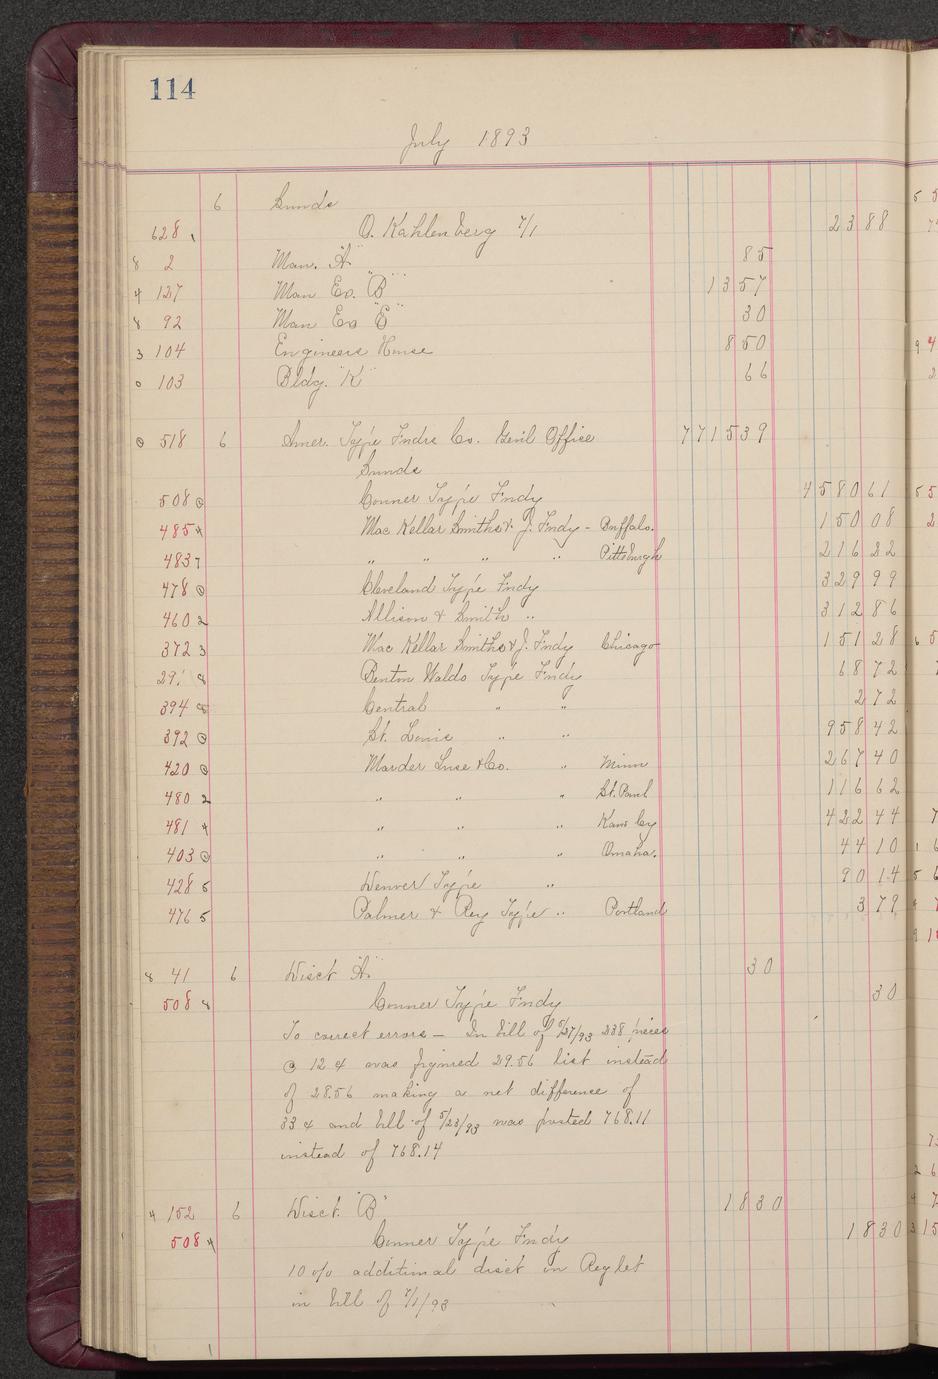 114
July 1893
6 Sunds
628 O. Kahlenberg 7/1 23 88
8 2 Man. "A" 85
4 127 Man Co. "B" 13 57
8 92 Man Co "E" 30
3 104 Engineers House 8 50
0 103 Bldg. "K" 66
0 518 6 Amer. Type Fndrs Co. Genl Office 7715 39
Sunds
508 0 Conner Type Fndy 4580 61
485 4 Mac Kellar Smiths & J. Fndy - Buffalo. 150 08
483 7 " " " " Pittsburgh 216 22
478 0 Cleveland Type Fndy 329 99
460 2 Allison & Smith " 312 86
372 3 Mac Kellar Smiths & J. Fndy Chicago 151 28
29 8 Benton Waldo Type Fndy 68 72
394 8 Central " " 2 72
392 0 St. Louis " " 958 42
420 0 Marder Luse & Co. " Minn 267 40
480 2 " " " St. Paul 116 62
481 4 " " " Kans Cy 422 44
403 0 " " " Omaha. 44 10
428 6 Denver Type " 90 14
476 5 Palmer & Rey Type " Portland 3 79
8 41 6 Disct "A" 30
508 8 Conner Type Fndy 30
To correct errors — In bill of 5/27/93 238 pieces
@ 12 ¢ was figured 29.56 list instead
of 28.56 making a net difference of
33 ¢ and bill of 5/23/93 was posted 768.11
instead of 768.14
4 152 6 Disct. "B" 18 30
508 4 Conner Type Fndy 18 30
10 o/o additional disct on Reglet
in bill of 7/1/93